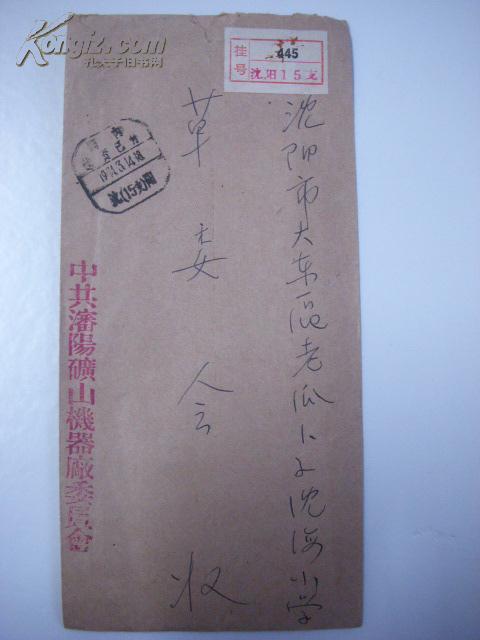 Kongfz.com
孔夫子旧书网
挂号
445
沈阳15支
沈阳市大东区老瓜卜子沈海小学
革委会 收
邮资已付
沈(15支)阳
中共瀋陽礦山機器廠委員會